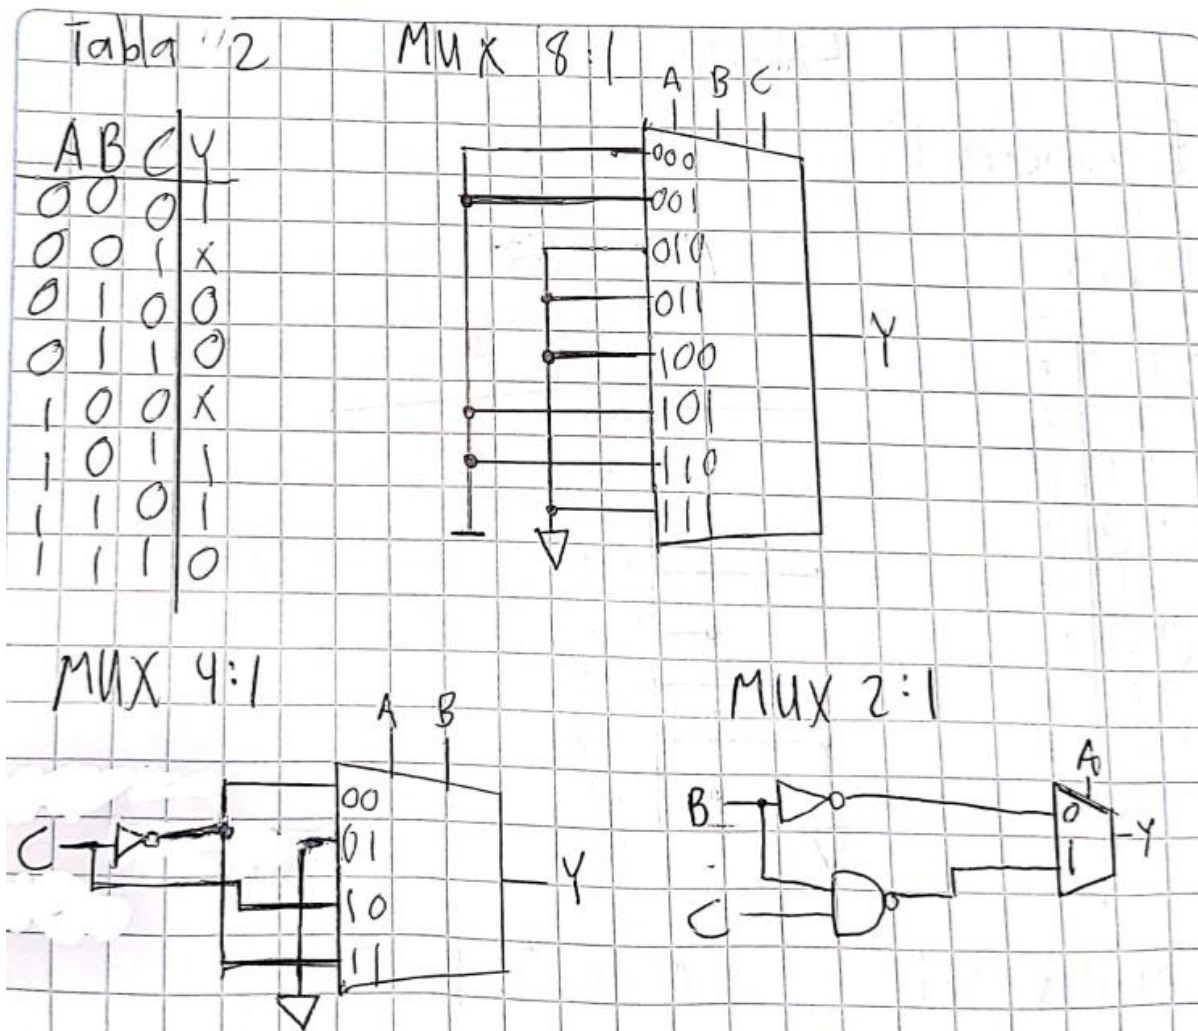 Tabla "2
MUX 8:1
A B C Y
0 0 0 1
0 0 1 x
0 1 0 0
0 1 1 0
1 0 0 x
1 0 1 1
1 1 0 1
1 1 1 0
A B C
000
001
010
011
100
101
110
111
Y
MUX 4:1
A B
C
00
01
10
11
Y
MUX 2:1
A
B
C
0
1
Y